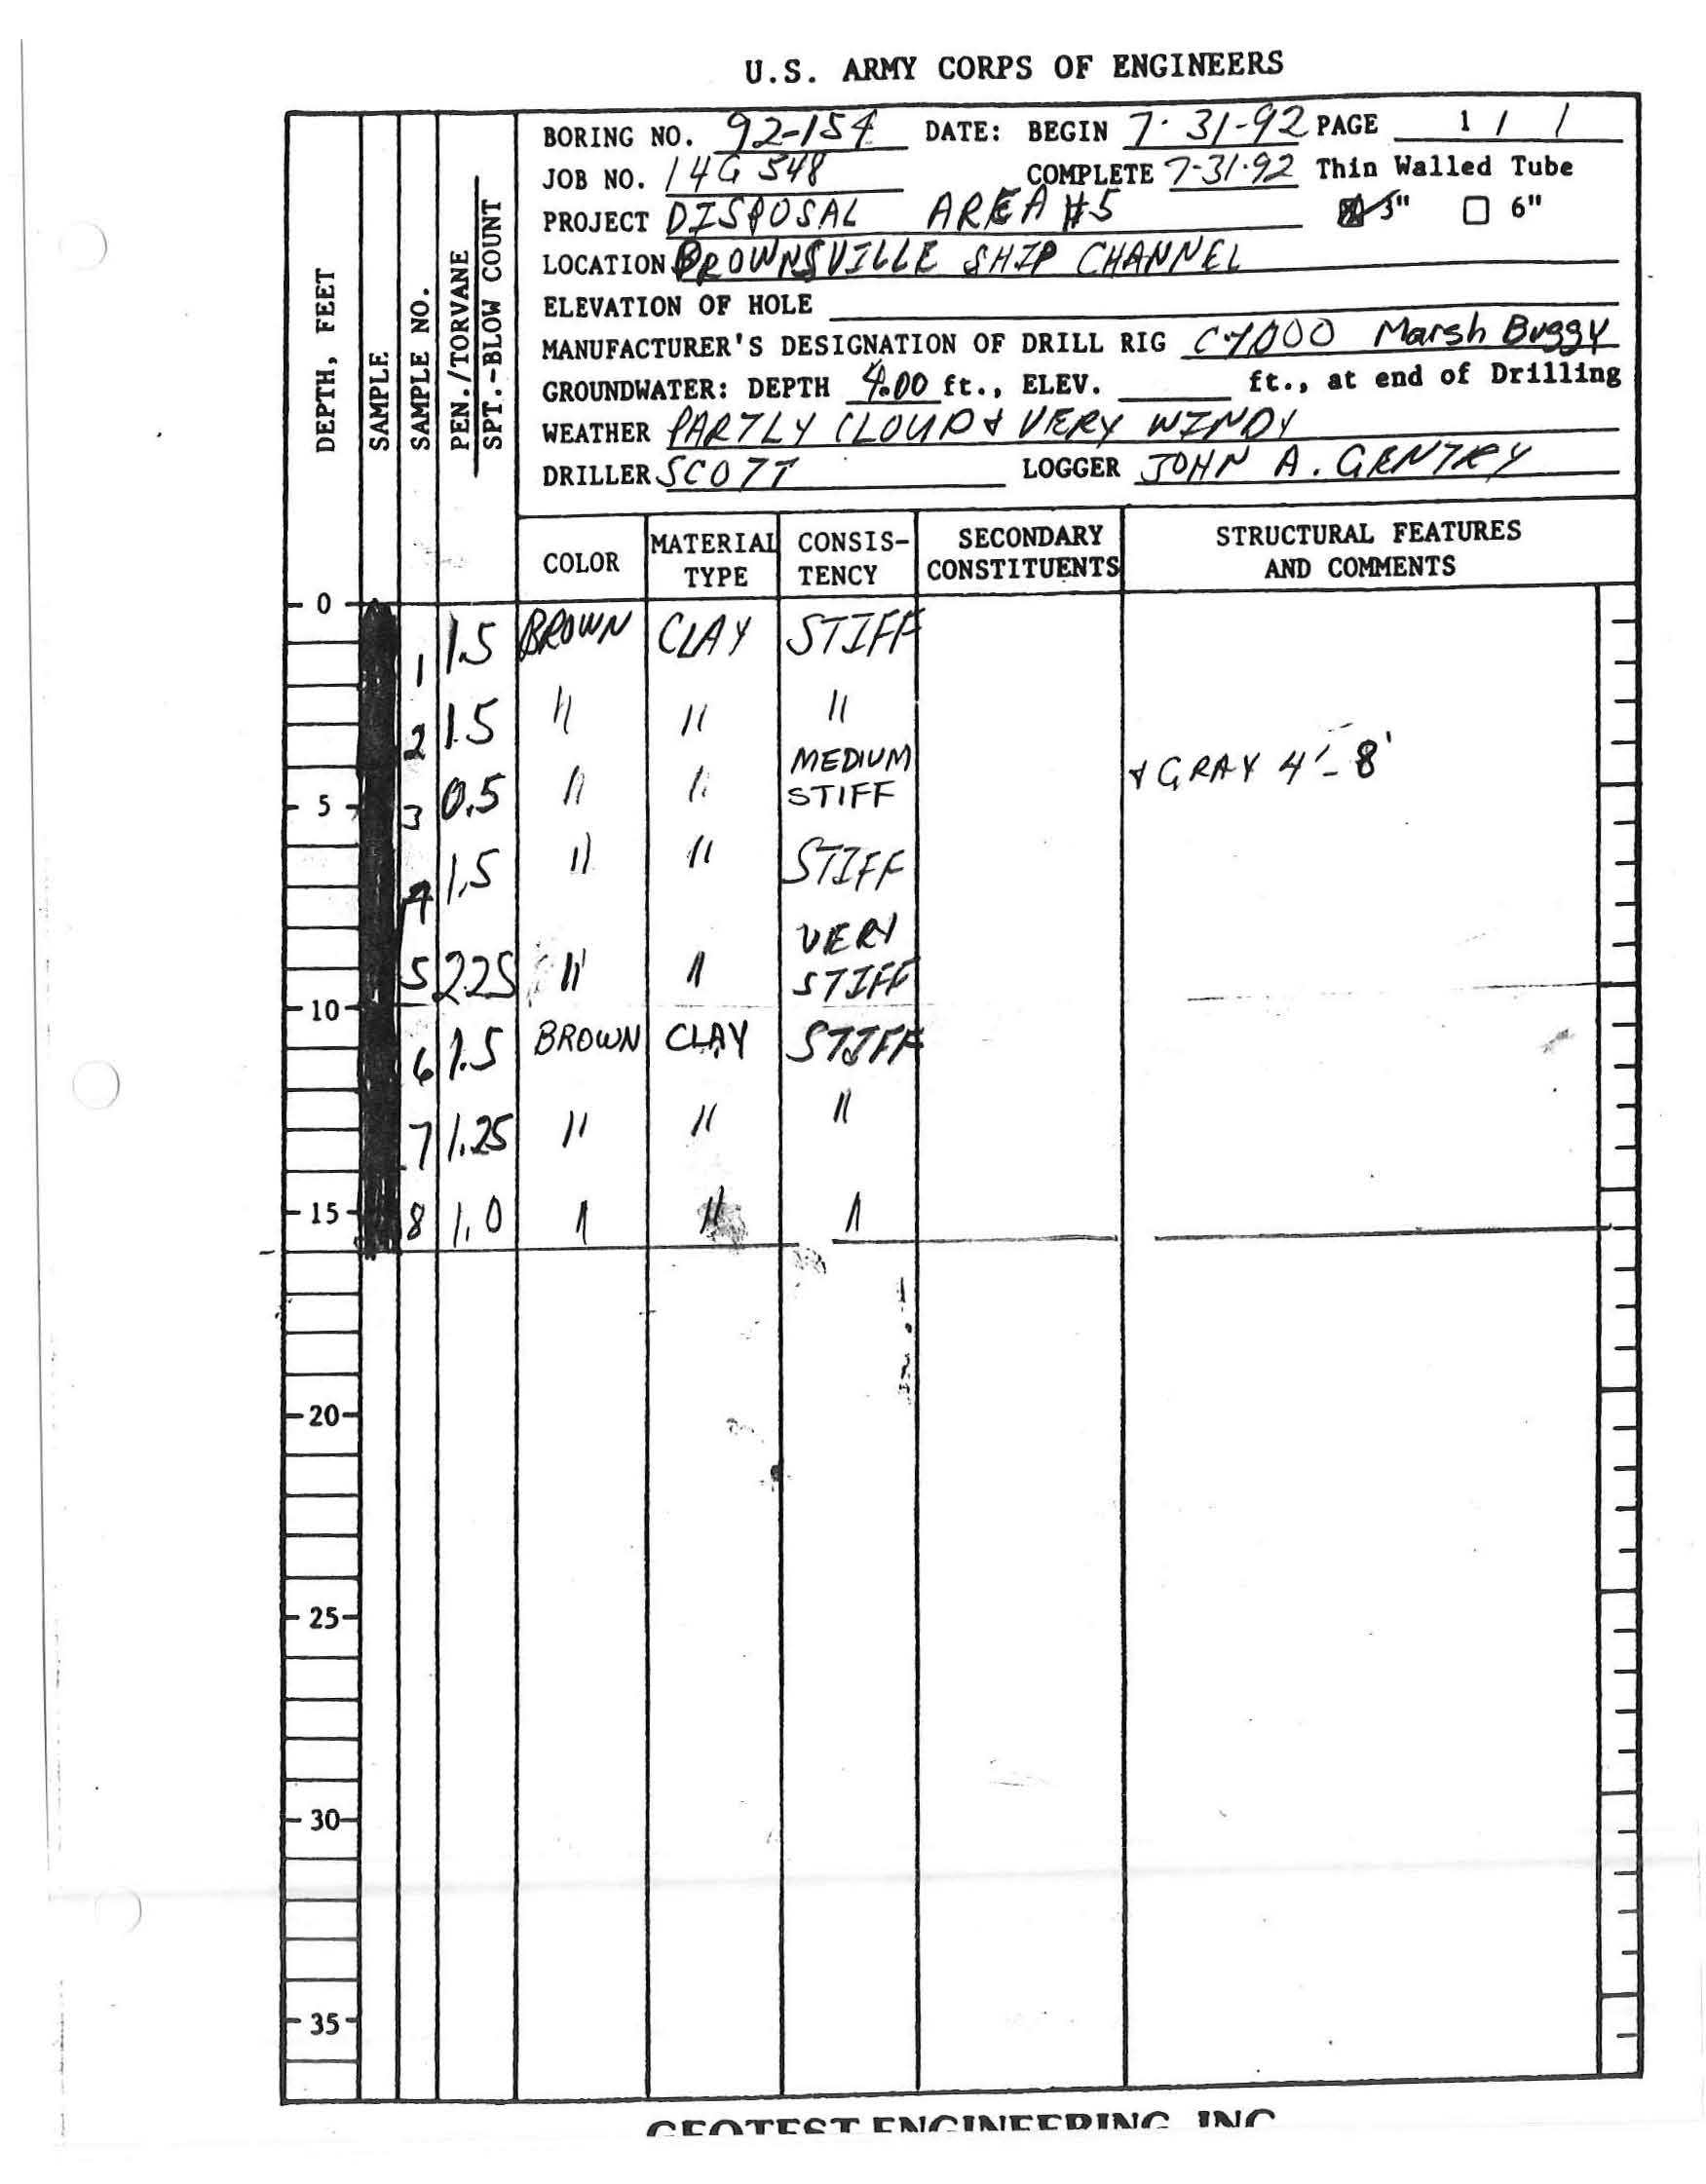 U.S. ARMY CORPS OF ENGINEERS
BORING NO. 92-154 DATE: BEGIN 7-31-92 PAGE 1 / 1
JOB NO. 14G 548 COMPLETE 7-31-92 Thin Walled Tube
PROJECT DISPOSAL AREA #5 3" 6"
LOCATION BROWNSVILLE SHIP CHANNEL
ELEVATION OF HOLE
MANUFACTURER'S DESIGNATION OF DRILL RIG Marsh Buggy
GROUNDWATER: DEPTH 4.00 ft., ELEV. ft., at end of Drilling
WEATHER PARTLY CLOUDY VERY WINDY
DRILLER SCOTT LOGGER JOHN A. GENTRY
DEPTH, FEET
SAMPLE
SAMPLE NO.
PEN./TORVANE
SPT.-BLOW COUNT
COLOR MATERIAL TYPE CONSIS-TENCY SECONDARY CONSTITUENTS STRUCTURAL FEATURES AND COMMENTS
0
1 1.5 BROWN CLAY STIFF
2 1.5 " " "
5 3 0.5 " " MEDIUM STIFF & GRAY 4'-8'
4 1.5 " " STIFF
5 2.25 " " VERY STIFF
10
6 1.5 BROWN CLAY STIFF
7 1.25 " " "
15 8 1.0 " " "
20
25
30
35
GEOTEST ENGINEERING, INC